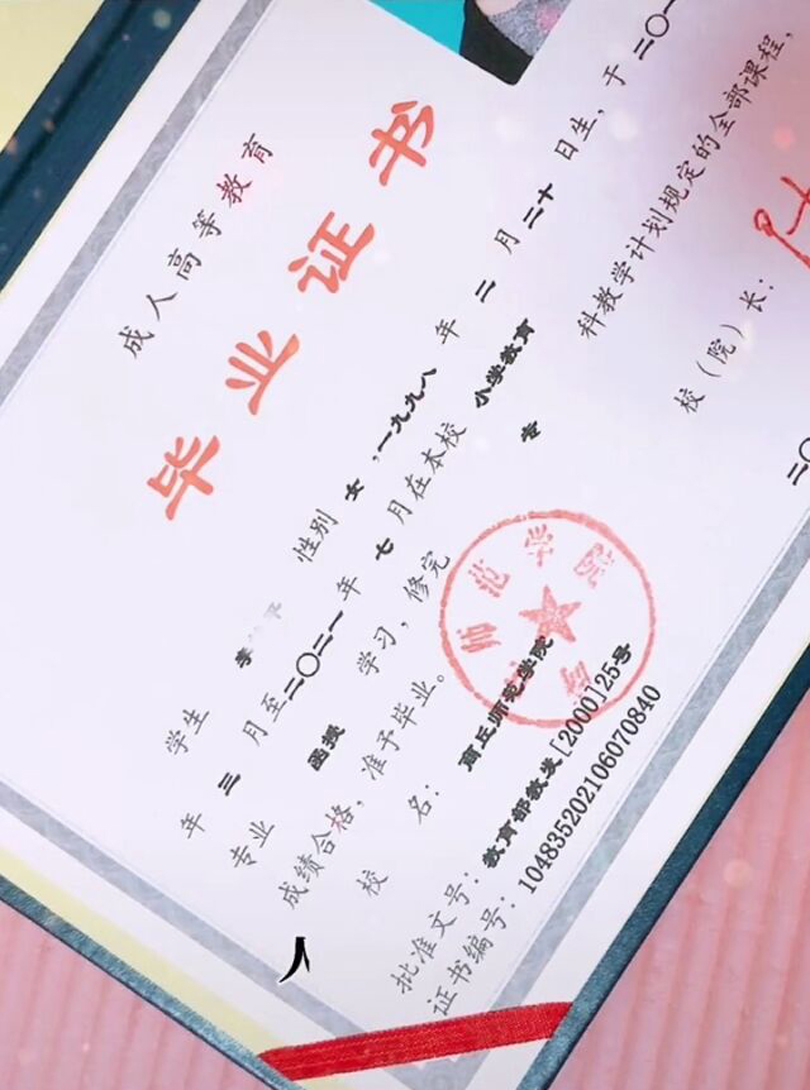 成人高等教育
毕业证书
学生 李 性别 女，一九九八 年 二 月 二十 日生，于 二〇一
年 三 月至二〇二一年 七 月在本校 小学教育
专业 函授 学习，修完 专 科教学计划规定的全部课程，
成绩合格，准予毕业。
校 名： 商丘师范学院 校（院）长：
批准文号：教育部教发[2000]25号 二〇
证书编号：104835202106070840
师范学院
人